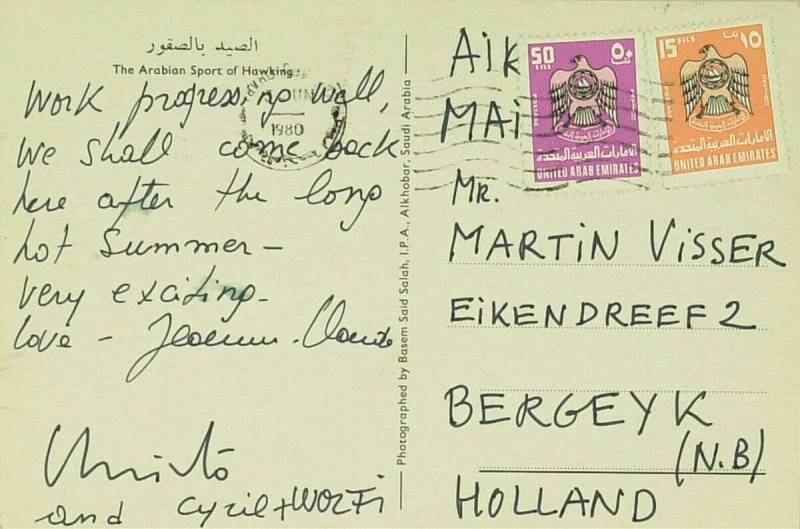 الصيد بالصقور
The Arabian Sport of Hawking
Work progressing well,
We shall come back
here after the long
hot Summer —
very exciting —
love — Jeanne-Claude
Christo
and Cyril + WOLFi
1980
Photographed by Basem Said Salah, I.P.A., Alkhobar, Saudi Arabia
AiR
MAi
50
٥٠
FILS
الامارات العربية المتحدة
UNITED ARAB EMIRATES
15 FILS
١٥
الامارات العربية المتحدة
UNITED ARAB EMIRATES
Mr.
MARTiN ViSSER
EiKENDREEF 2
BERGEYK
(N.B)
HOLLAND